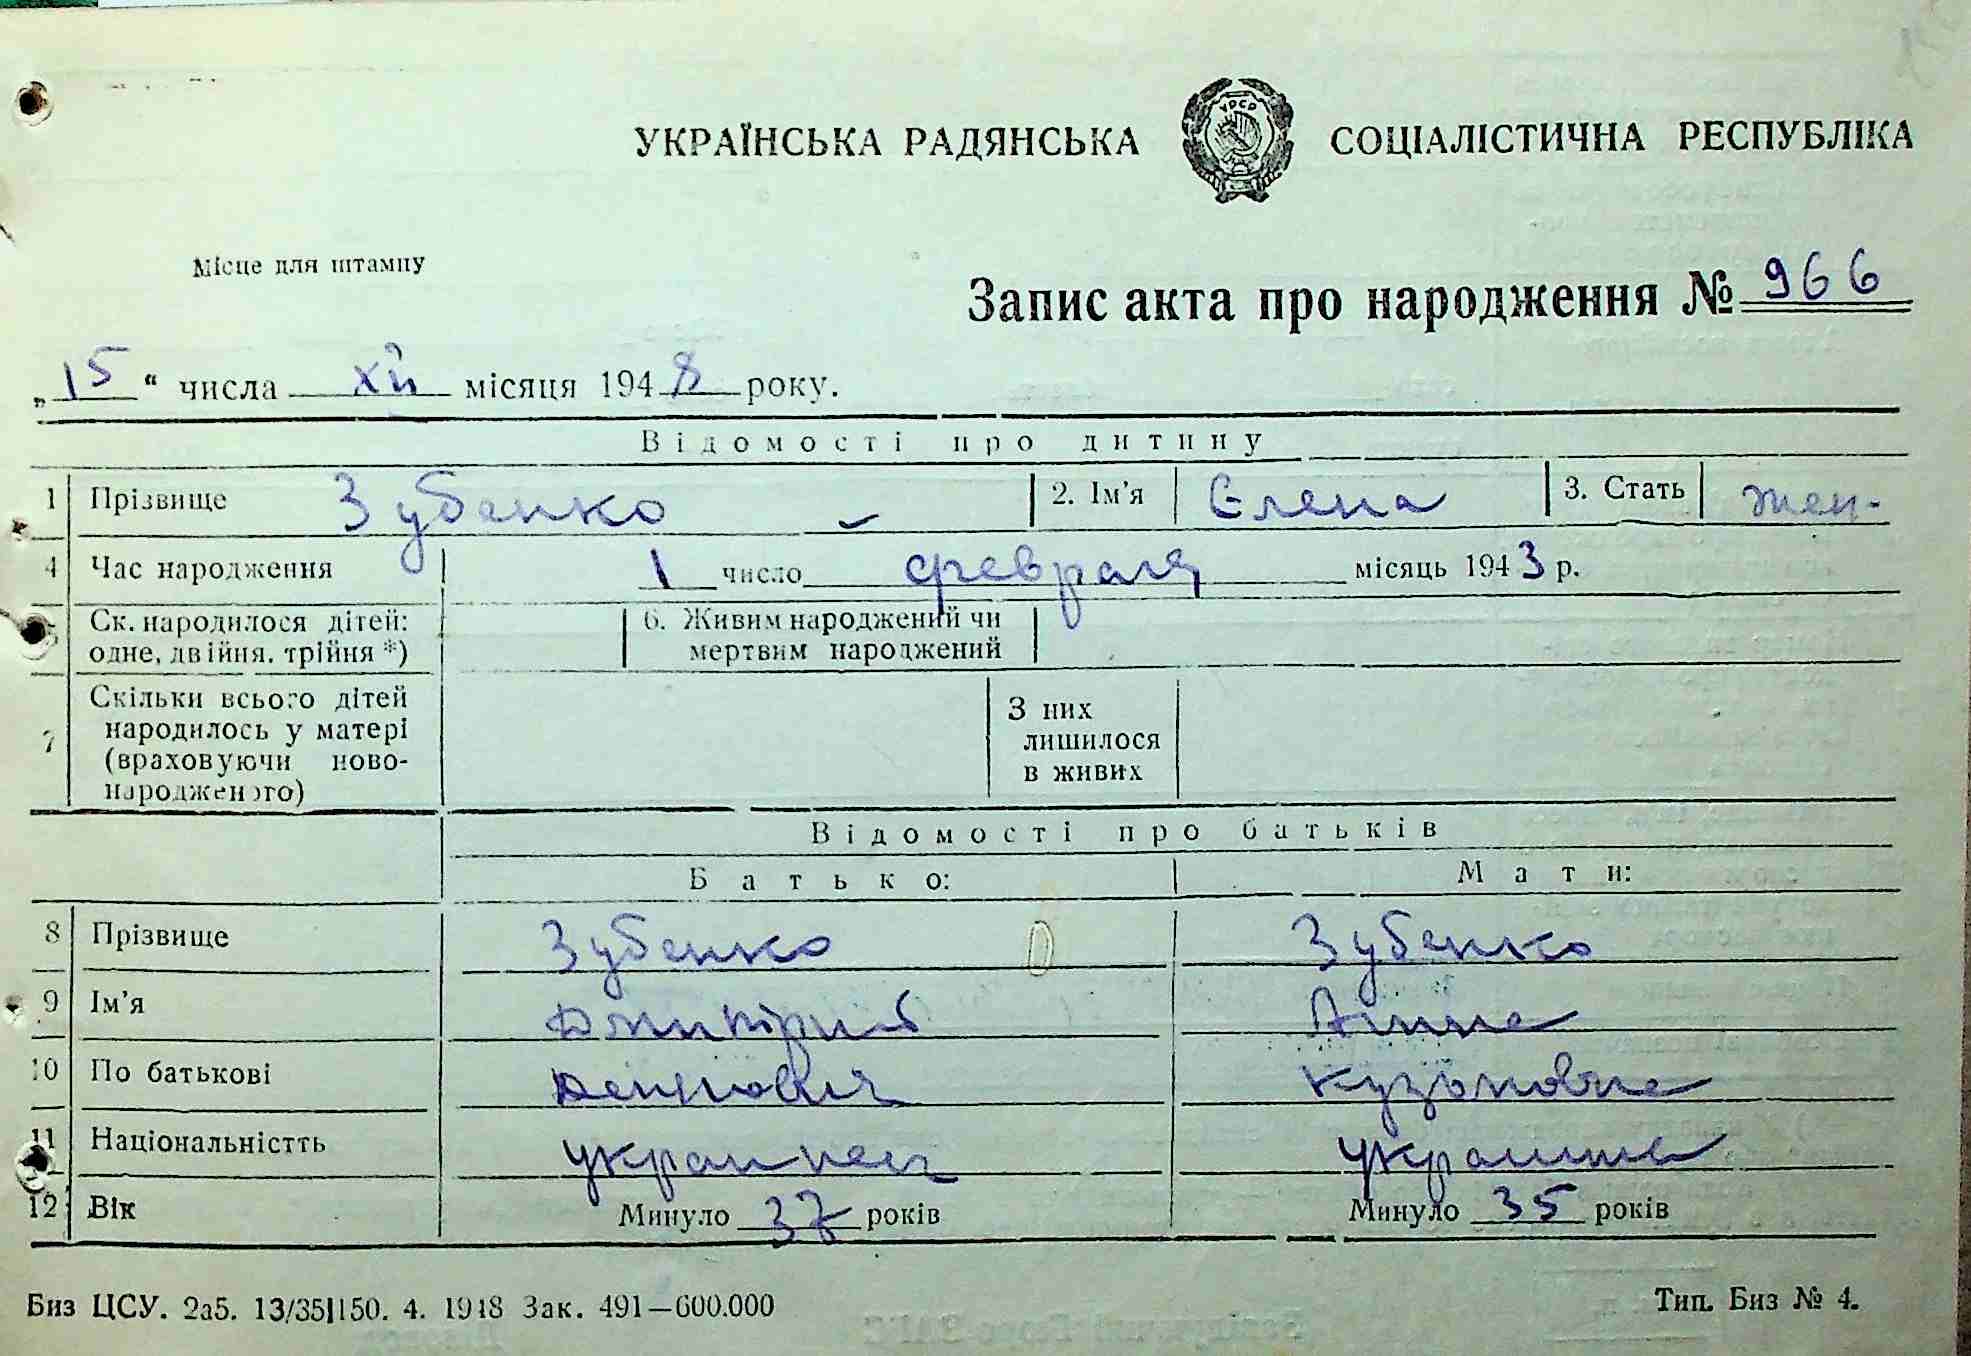 УКРАЇНСЬКА РАДЯНСЬКА УРСР СОЦІАЛІСТИЧНА РЕСПУБЛІКА
Місце для штампу
Запис акта про народження № 966
„15“ числа XII місяця 1948 року.
Відомості про дитину
1 Прізвище Зубенко 2. Ім'я Єлена 3. Стать жен-
4 Час народження 1 число февраля місяць 1943 р.
5 Ск. народилося дітей: 6. Живим народжений чи
одне, двійня, трійня *) мертвим народжений
7 Скільки всього дітей З них
народилось у матері лишилося
(враховуючи ново- в живих
народженого)
Відомості про батьків
Батько: Мати:
8 Прізвище Зубенко Зубенко
9 Ім'я Дмитрий Анна
10 По батькові Кузьмовна
11 Національністть украинец украинка
12 Вік Минуло 37 років Минуло 35 років
Биз ЦСУ. 2а5. 13/35|150. 4. 1948 Зак. 491—600.000 Тип. Биз № 4.